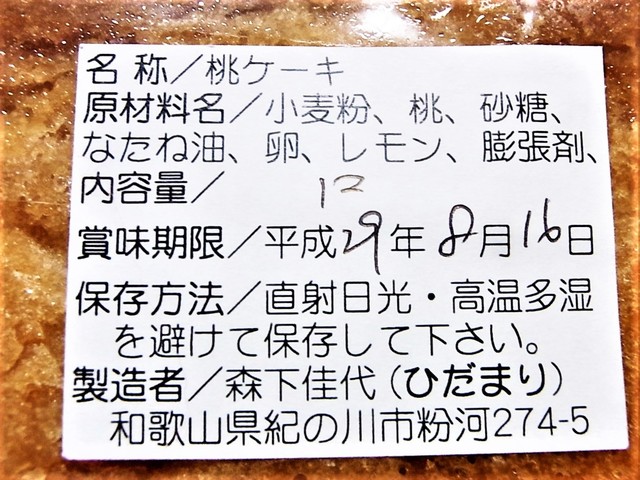 名 称／桃ケーキ
原材料名／小麦粉、桃、砂糖、
なたね油、卵、レモン、膨張剤、
内容量／
賞味期限／平成29年8月16日
保存方法／直射日光・高温多湿
を避けて保存して下さい。
製造者／森下佳代(ひだまり)
和歌山県紀の川市粉河274-5